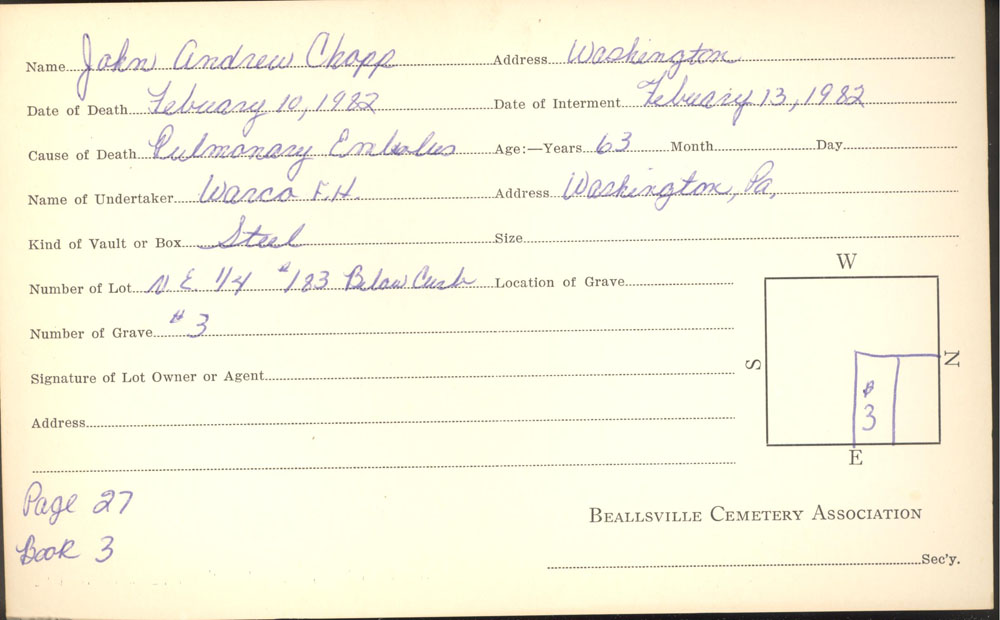 Name John Andrew Chopp Address Washington
Date of Death Febuary 10, 1982 Date of Interment Febuary 13, 1982
Cause of Death Pulmonary Embolus Age:—Years 63 Month Day
Name of Undertaker Warco F.H. Address Washington, Pa,
Kind of Vault or Box Steel Size
Number of Lot N E 1/4 #183 Below Curb Location of Grave
Number of Grave #3
Signature of Lot Owner or Agent
Address
W
S
N
#3
E
Page 27
Book 3
BEALLSVILLE CEMETERY ASSOCIATION
Sec'y.